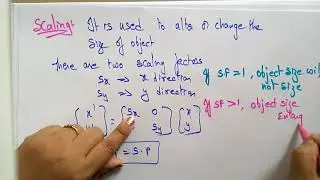 Scaling: It is used to alter or change the
size of object
There are two scaling factors
Sx ⇒ x direction
Sy ⇒ y direction
[x'] = [Sx 0
Sy] [x
y]
= S·P
If SF=1, object size will
not size
If SF>1, object size
Enlarg